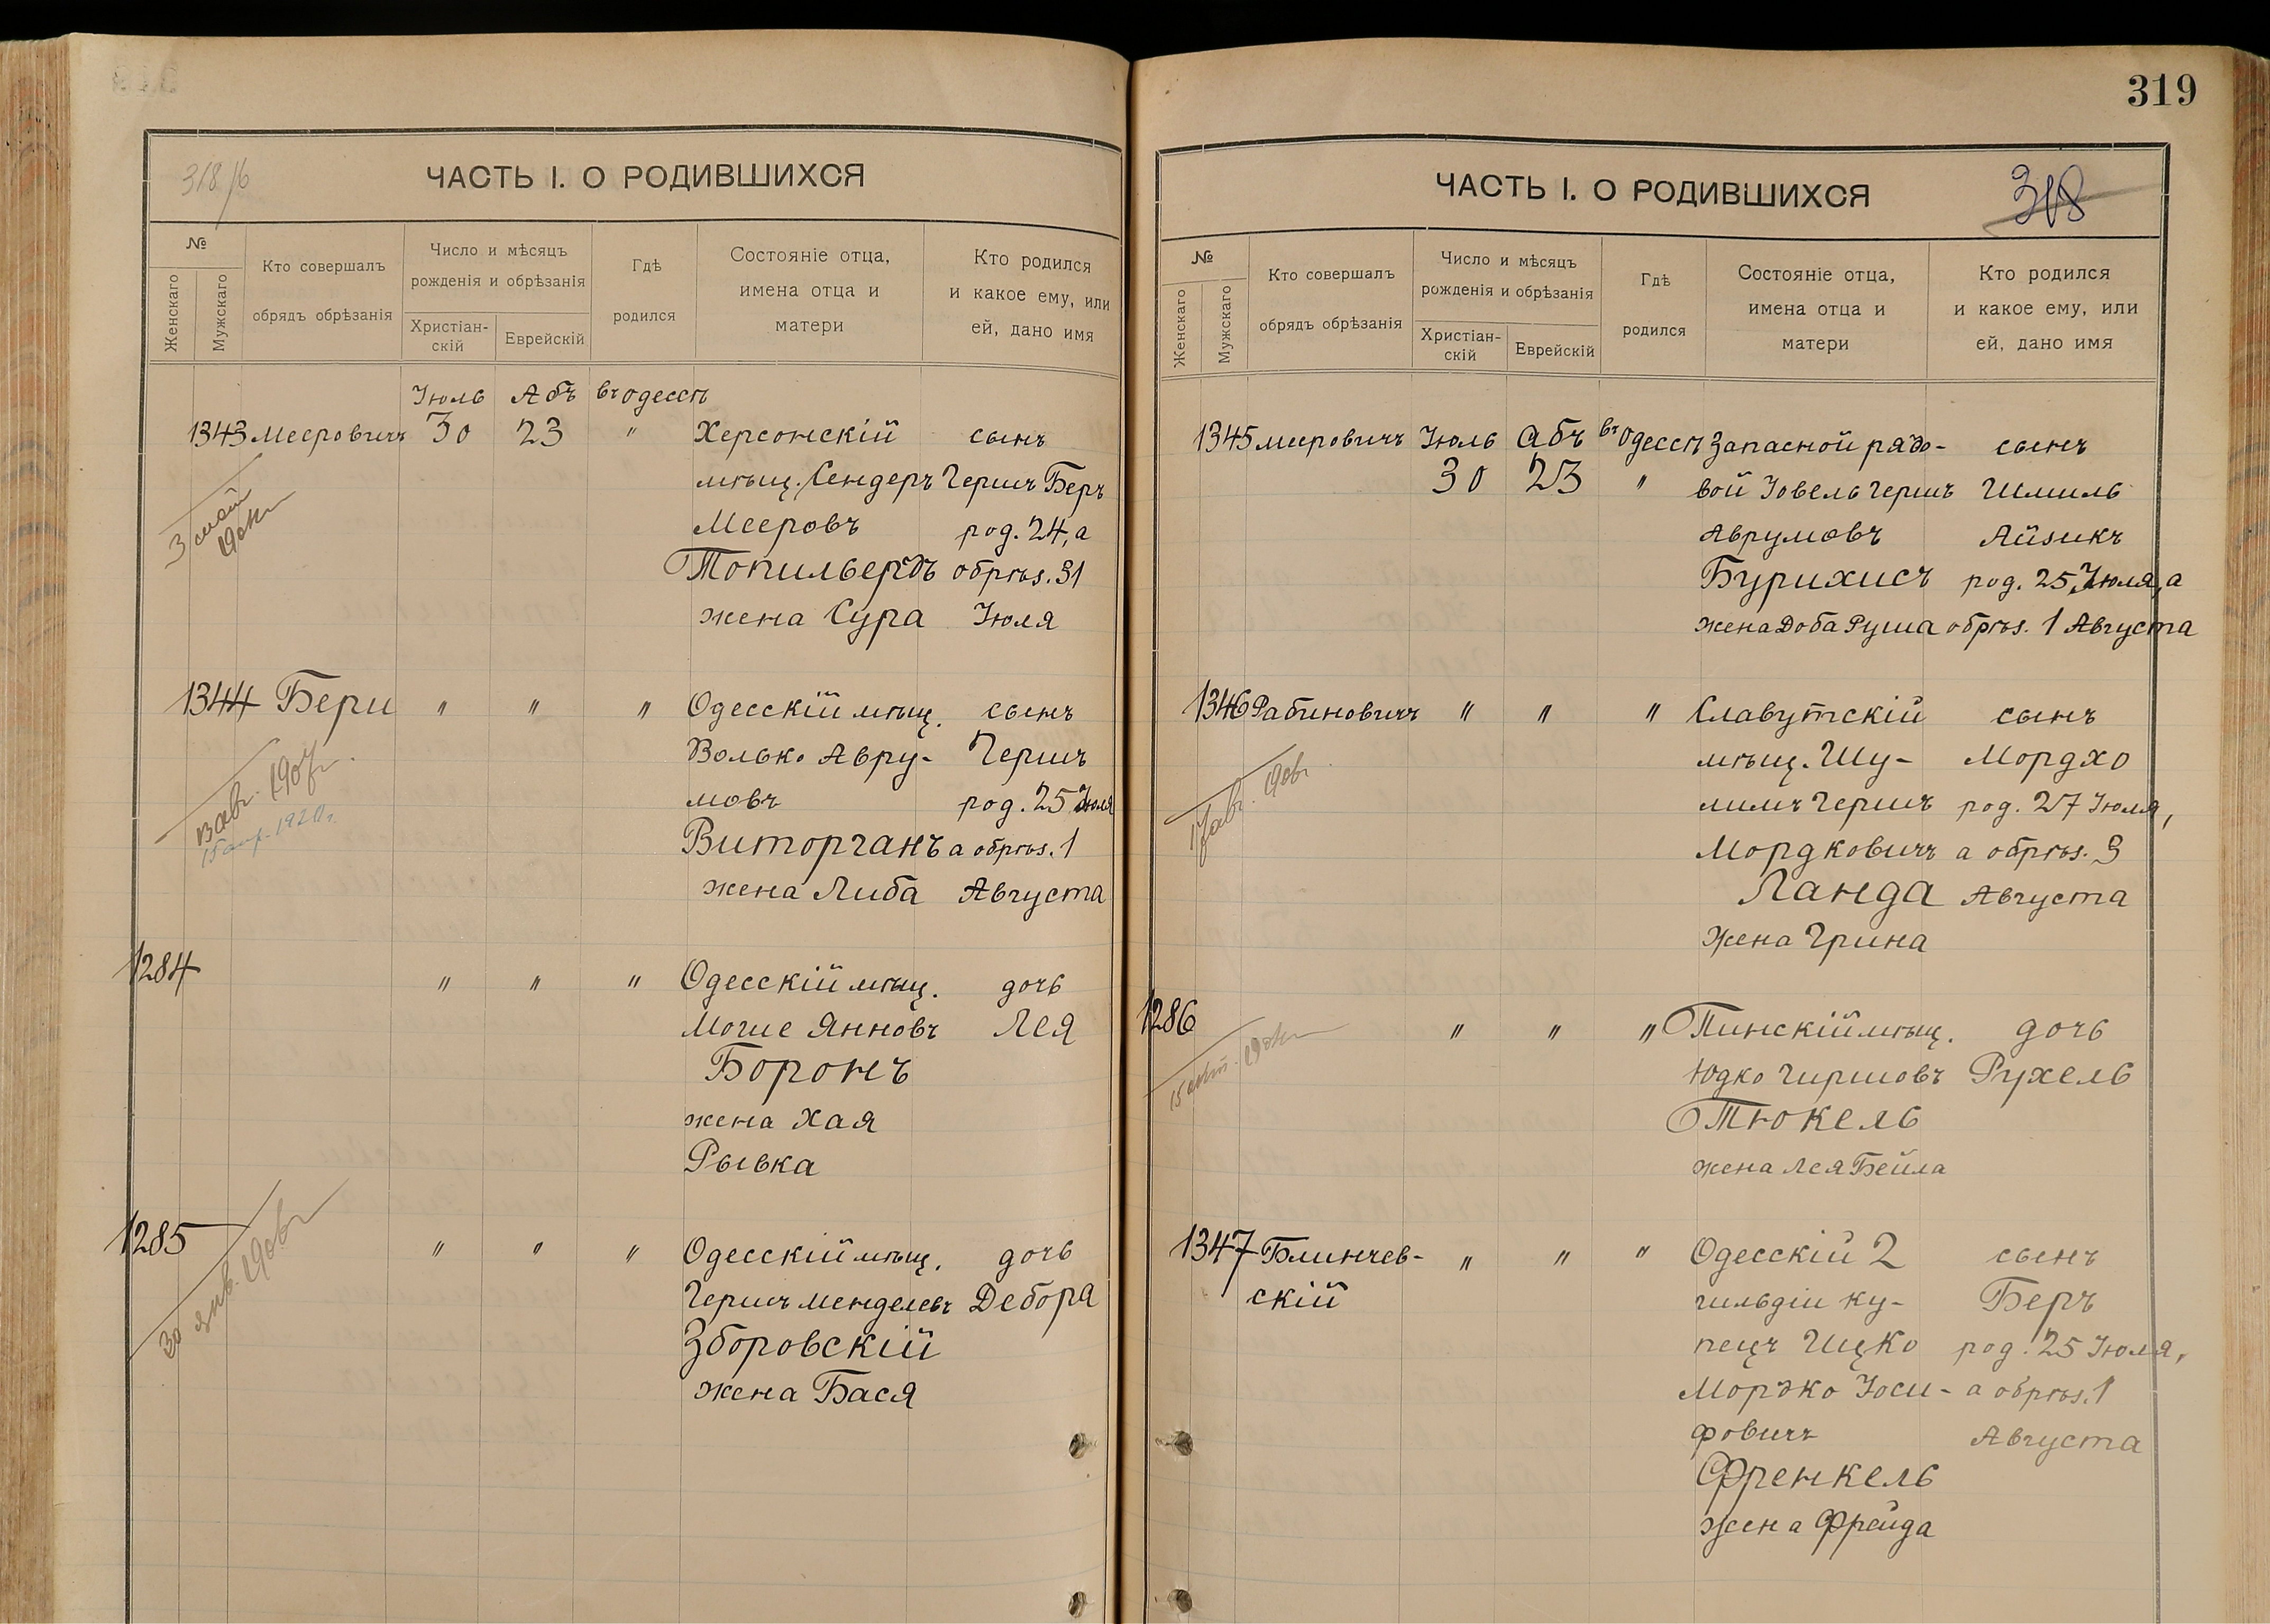 319
318 /б
ЧАСТЬ I. О РОДИВШИХСЯ
№
Женскаго
Мужскаго
Кто совершалъ
обрядъ обрѣзанія
Число и мѣсяцъ
рожденія и обрѣзанія
Христіан-
скій
Еврейскій
Гдѣ
родился
Состояніе отца,
имена отца и
матери
Кто родился
и какое ему, или
ей, дано имя
Іюль Абъ въ Одессѣ
1343 Мееровичъ 30 23 " Херсонскій сынъ
мѣщ. Сендеръ Гершъ Беръ
Мееровъ род. 24, а
Топильбердъ обрѣз. 31
жена Сура Іюля
3 май
1344 Бери " " " Одесскій мѣщ. сынъ
Волько Авру- Гершъ
мовъ род. 25 Іюля
Виторганъ а обрѣз. 1
жена Либа Августа
13 авг. 1907 г.
15 апр. 1920 г.
1284 " " " Одесскій мѣщ. дочь
Могше Янновъ Лея
Боронъ
жена Хая
Рывка
1285 " " " Одесскій мѣщ. дочь
Гершъ Менделевъ Дебора
Зборовскій
жена Бася
30 янв. 1906 г
ЧАСТЬ I. О РОДИВШИХСЯ
318
№
Женскаго
Мужскаго
Кто совершалъ
обрядъ обрѣзанія
Число и мѣсяцъ
рожденія и обрѣзанія
Христіан-
скій
Еврейскій
Гдѣ
родился
Состояніе отца,
имена отца и
матери
Кто родился
и какое ему, или
ей, дано имя
1345 Мееровичъ Іюль Абъ въ Одессѣ Запасной рядо- сынъ
30 23 " вой Іовель Гершъ Шмиль
Аврумовъ Айзикъ
Бурихисъ род. 25 Іюля, а
жена Доба Руша обрѣз. 1 Августа
1346 Рабиновичъ " " " Славутскій сынъ
мѣщ. Шу- Мордхо
лимъ Гершъ род. 27 Іюля,
Мордковичъ а обрѣз. 3
Ланда Августа
жена Грина
17 авг. 1906 г
1286 " " " Пинскій мѣщ. дочь
Юдко Гиршовъ Рухель
Тюкель
жена Лея Бейла
1347 Блинчев- " " " Одесскій 2 сынъ
скій гильдіи ку- Беръ
пецъ Ицко род. 25 Іюля,
Мордко Іоси- а обрѣз. 1
фовичъ Августа
Френкель
жена Фрейда